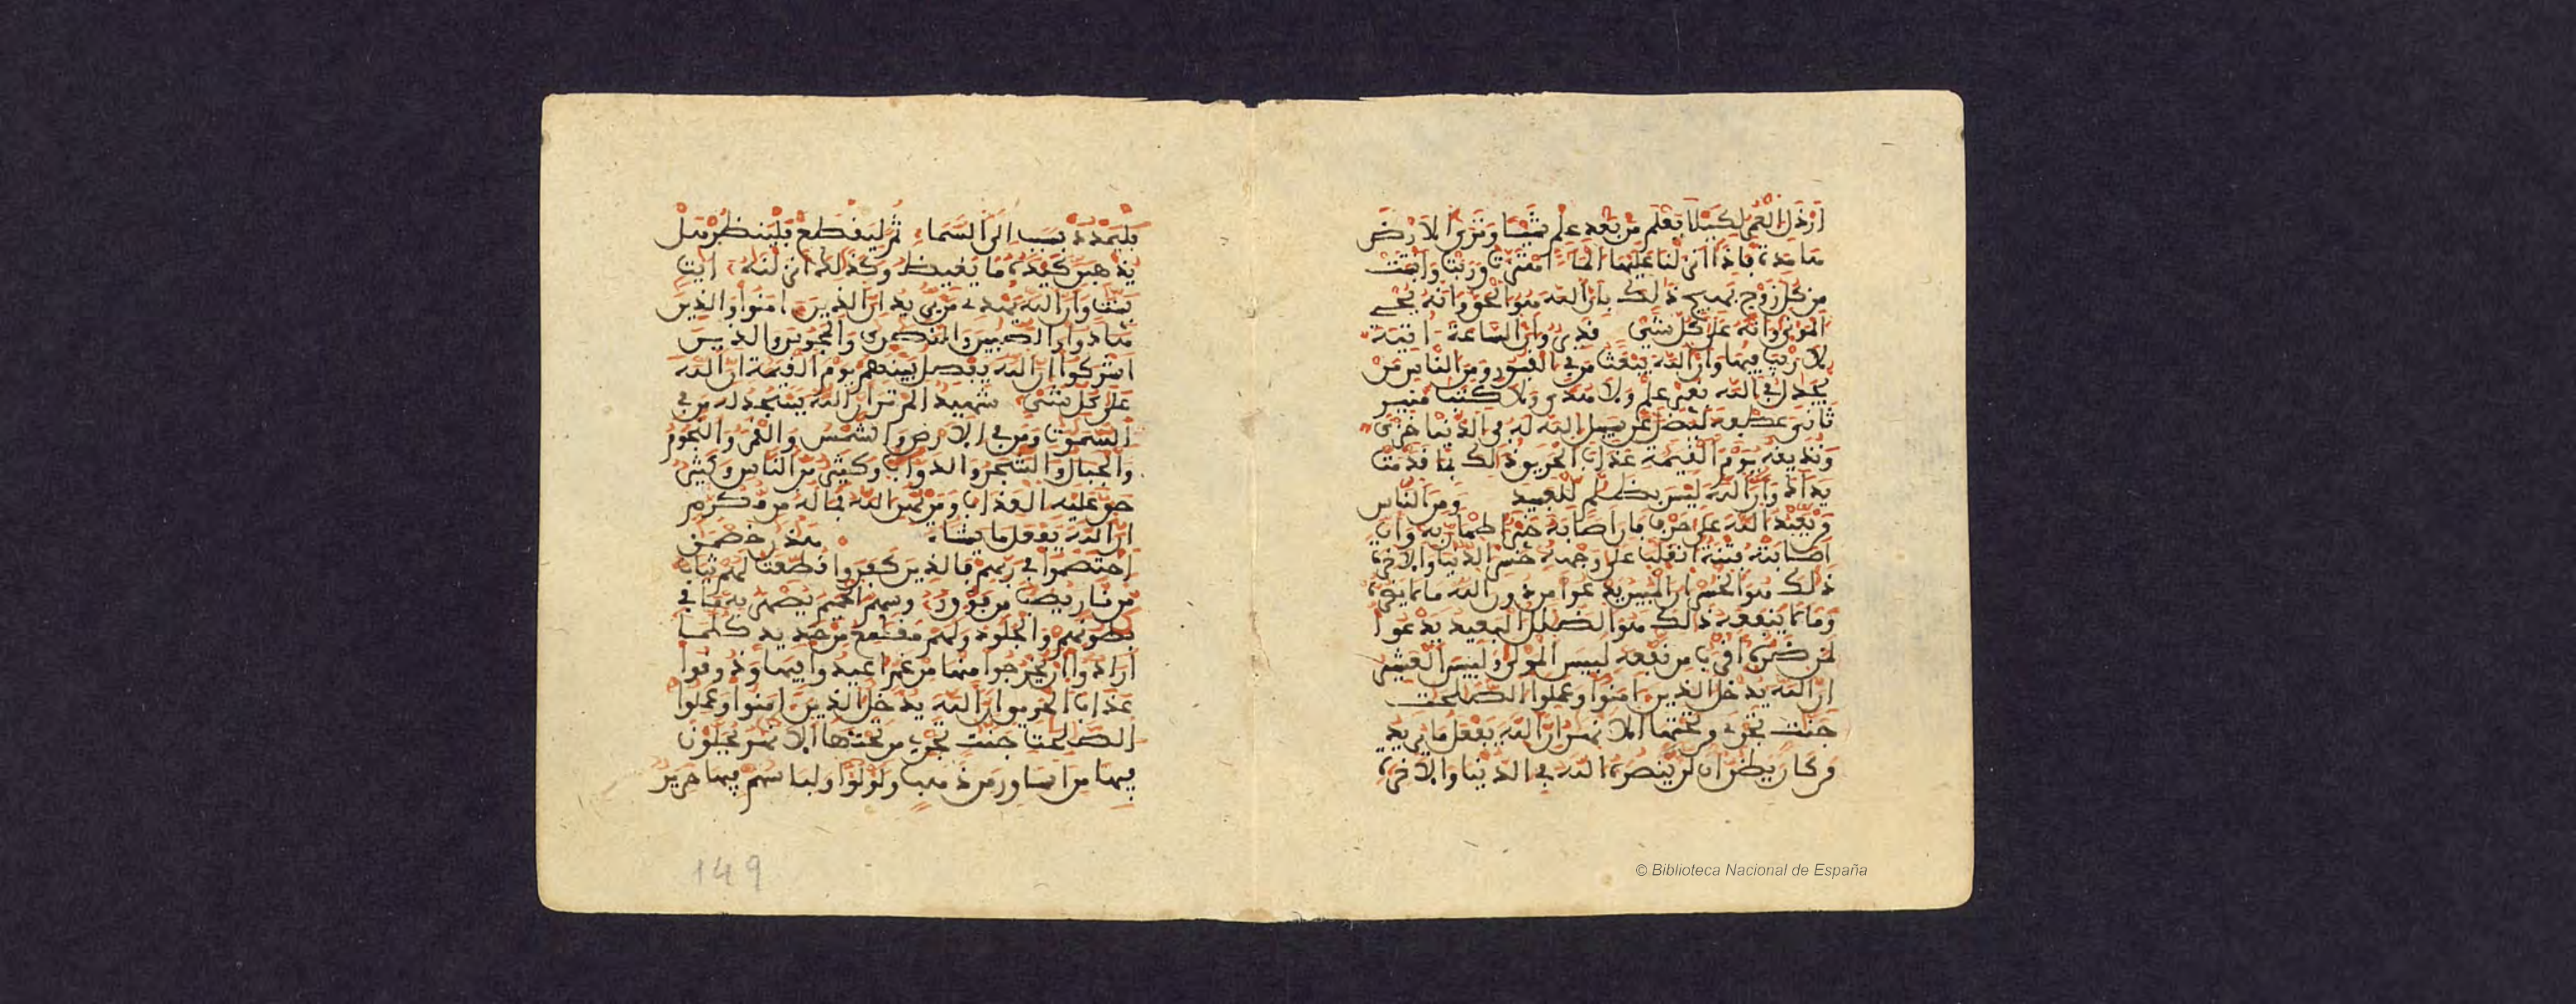 ارذل العمر لكيلا يعلم من بعد علم شيئا وترى الارض
هامدة فاذا انزلنا عليها الما اهتزت وربت وانبتت
من كل زوج بهيج ذلك بان الله هو الحق وانه يحي
الموتى وانه على كل شي قدير وان الساعة اتية
لا ريب فيها وان الله يبعث من في القبور ومن الناس من
يجدل في الله بغير علم ولا هدى ولا كتب منير
ثاني عطفه ليضل عن سبيل الله له في الدنيا خزي
ونذيقه يوم القيمة عذاب الحريق ذلك بما قدمت
يداك وان الله ليس بظلم للعبيد ومن الناس
من يعبد الله على حرف فان اصابه خير اطمان به وان
اصابته فتنة انقلب على وجهه خسر الدنيا والاخرة
ذلك هو الخسران المبين يدعوا من دون الله ما لا يضره
وما لا ينفعه ذلك هو الضلل البعيد يدعوا
لمن ضره اقرب من نفعه لبيس المولى ولبيس العشير
ان الله يدخل الذين امنوا وعملوا الصلحت
جنت تجري من تحتها الانهر ان الله يفعل ما يريد
من كان يظن ان لن ينصره الله في الدنيا والاخرة
فليمدد بسبب الى السما ثم ليقطع فلينظر هل
يذهبن كيده ما يغيظ وكذلك انزلنه ايت
بينت وان الله يهدي من يريد ان الذين امنوا والذين
هادوا والصبين والنصرى والمجوس والذين
اشركوا ان الله يفصل بينهم يوم القيمة ان الله
على كل شي شهيد الم تر ان الله يسجد له من في
السموت ومن في الارض والشمس والقمر والنجوم
والجبال والشجر والدواب وكثير من الناس وكثير
حق عليه العذاب ومن يهن الله فما له من مكرم
ان الله يفعل ما يشا هذن خصمن
اختصموا في ربهم فالذين كفروا قطعت لهم ثياب
من نار يصب من فوق روسهم الحميم يصهر به ما في
بطونهم والجلود ولهم مقمع من حديد كلما
ارادوا ان يخرجوا منها من غم اعيدوا فيها وذوقوا
عذاب الحريق ان الله يدخل الذين امنوا وعملوا
الصلحت جنت تجري من تحتها الانهر يحلون
فيها من اساور من ذهب ولولوا ولباسهم فيها حرير
149
© Biblioteca Nacional de España